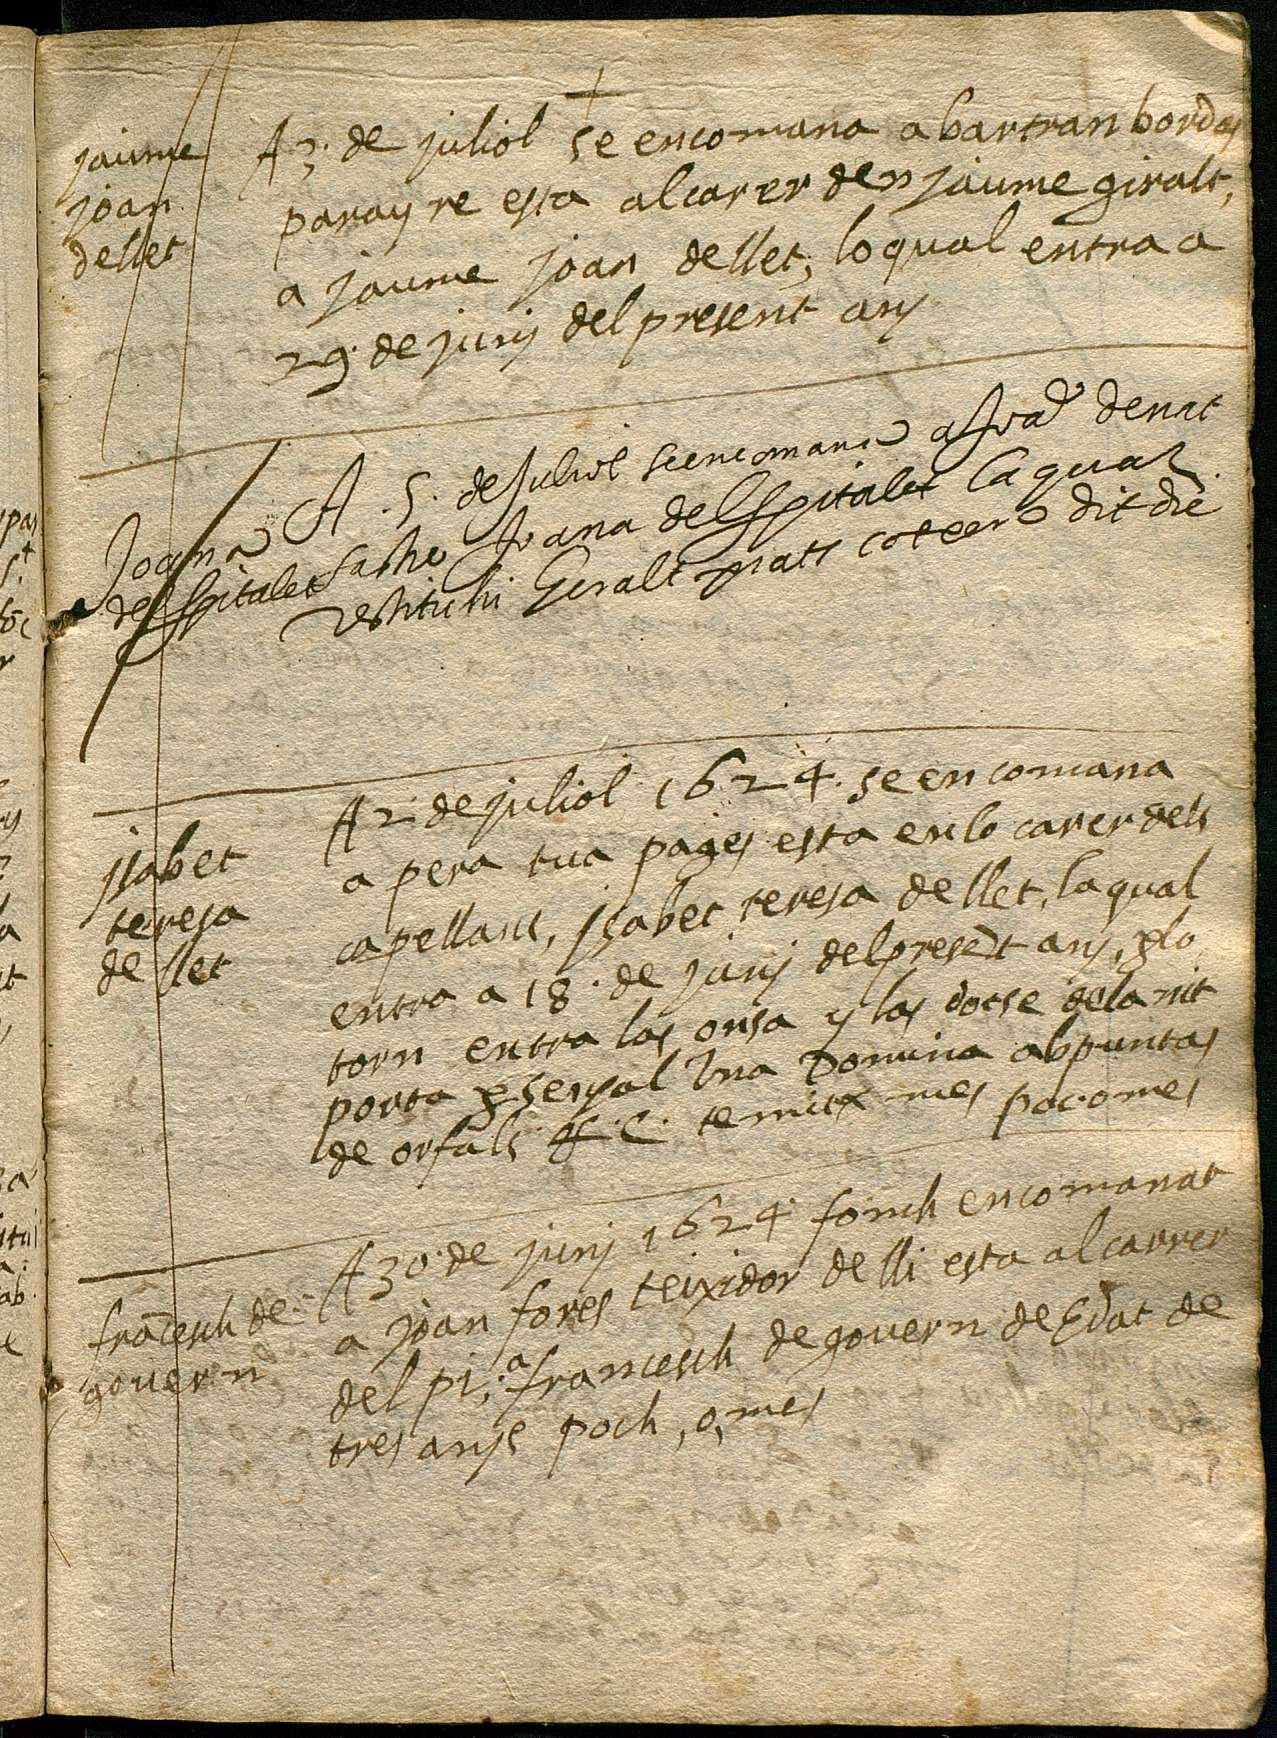 jaume
joan
de llet
A 3. de juliol se encomana a bartran bordas
parayre esta al carer den jaume giralt,
a jaume joan de llet, lo qual entra a
29. de juny del present any
Joana
de Spitalet
A. 5. de Juliol se encomana a Joa denat
sastre Joana del Spitalet la qual
restituhi Geralt prats coteer dit die
jsabet
teresa
de llet
A 2 de juliol 1624. se encomana
a pera tua pages esta en lo carer dels
capellans, jsabet teresa de llet, la qual
entra a 18. de juny del present any, p lo
torn entra las onsa y las dotse de la nit
porta p senyal una Domina ab puntas
de orfals &.C. te mitx mes poc o mes
francesch de
govern
A 30. de juny 1624 fonch encomanat
a joan fores teixidor de lli esta al carrer
del pi, a francesch de govern de Edat de
tres anys poch, o, mes